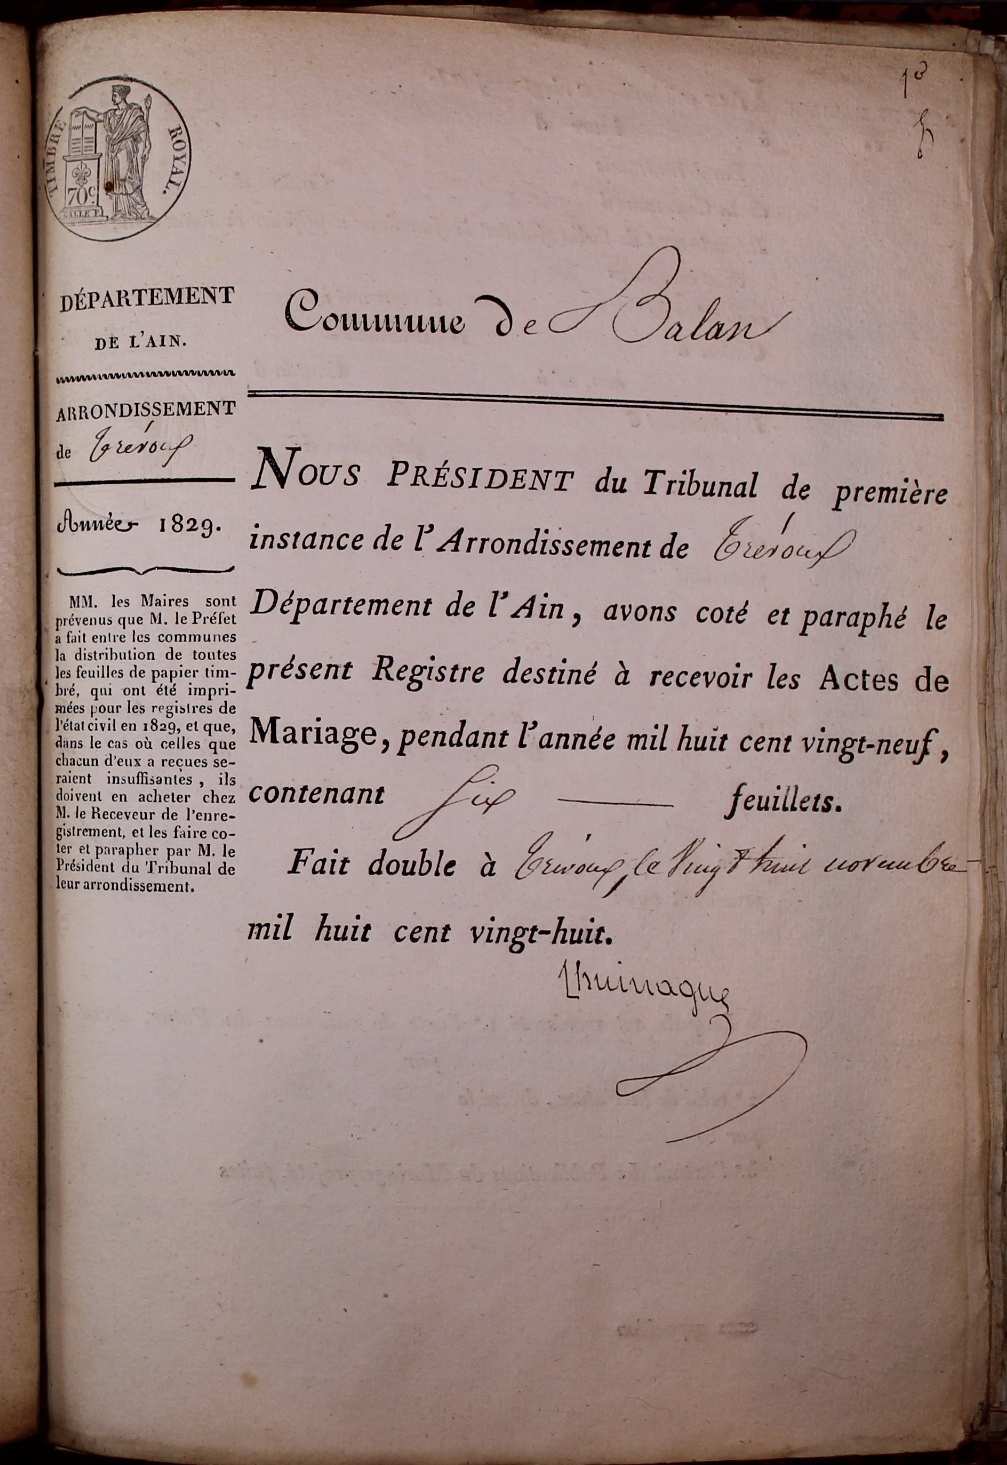 1er
TIMBRE ROYAL.
70c
DÉPARTEMENT
DE L'AIN.
ARRONDISSEMENT
de Trévoux
Année 1829.
MM. les Maires sont
prévenus que M. le Préfet
a fait entre les communes
la distribution de toutes
les feuilles de papier tim-
bré, qui ont été impri-
mées pour les registres de
l'état civil en 1829, et que,
dans le cas où celles que
chacun d'eux a reçues se-
raient insuffisantes, ils
doivent en acheter chez
M. le Receveur de l'enre-
gistrement, et les faire co-
ter et parapher par M. le
Président du Tribunal de
leur arrondissement.
Commune de Balan
NOUS PRÉSIDENT du Tribunal de première
instance de l'Arrondissement de Trévoux
Département de l'Ain, avons coté et paraphé le
présent Registre destiné à recevoir les Actes de
Mariage, pendant l'année mil huit cent vingt-neuf,
contenant Six feuillets.
Fait double à Trévoux, le Vingt huit novembre
mil huit cent vingt-huit.